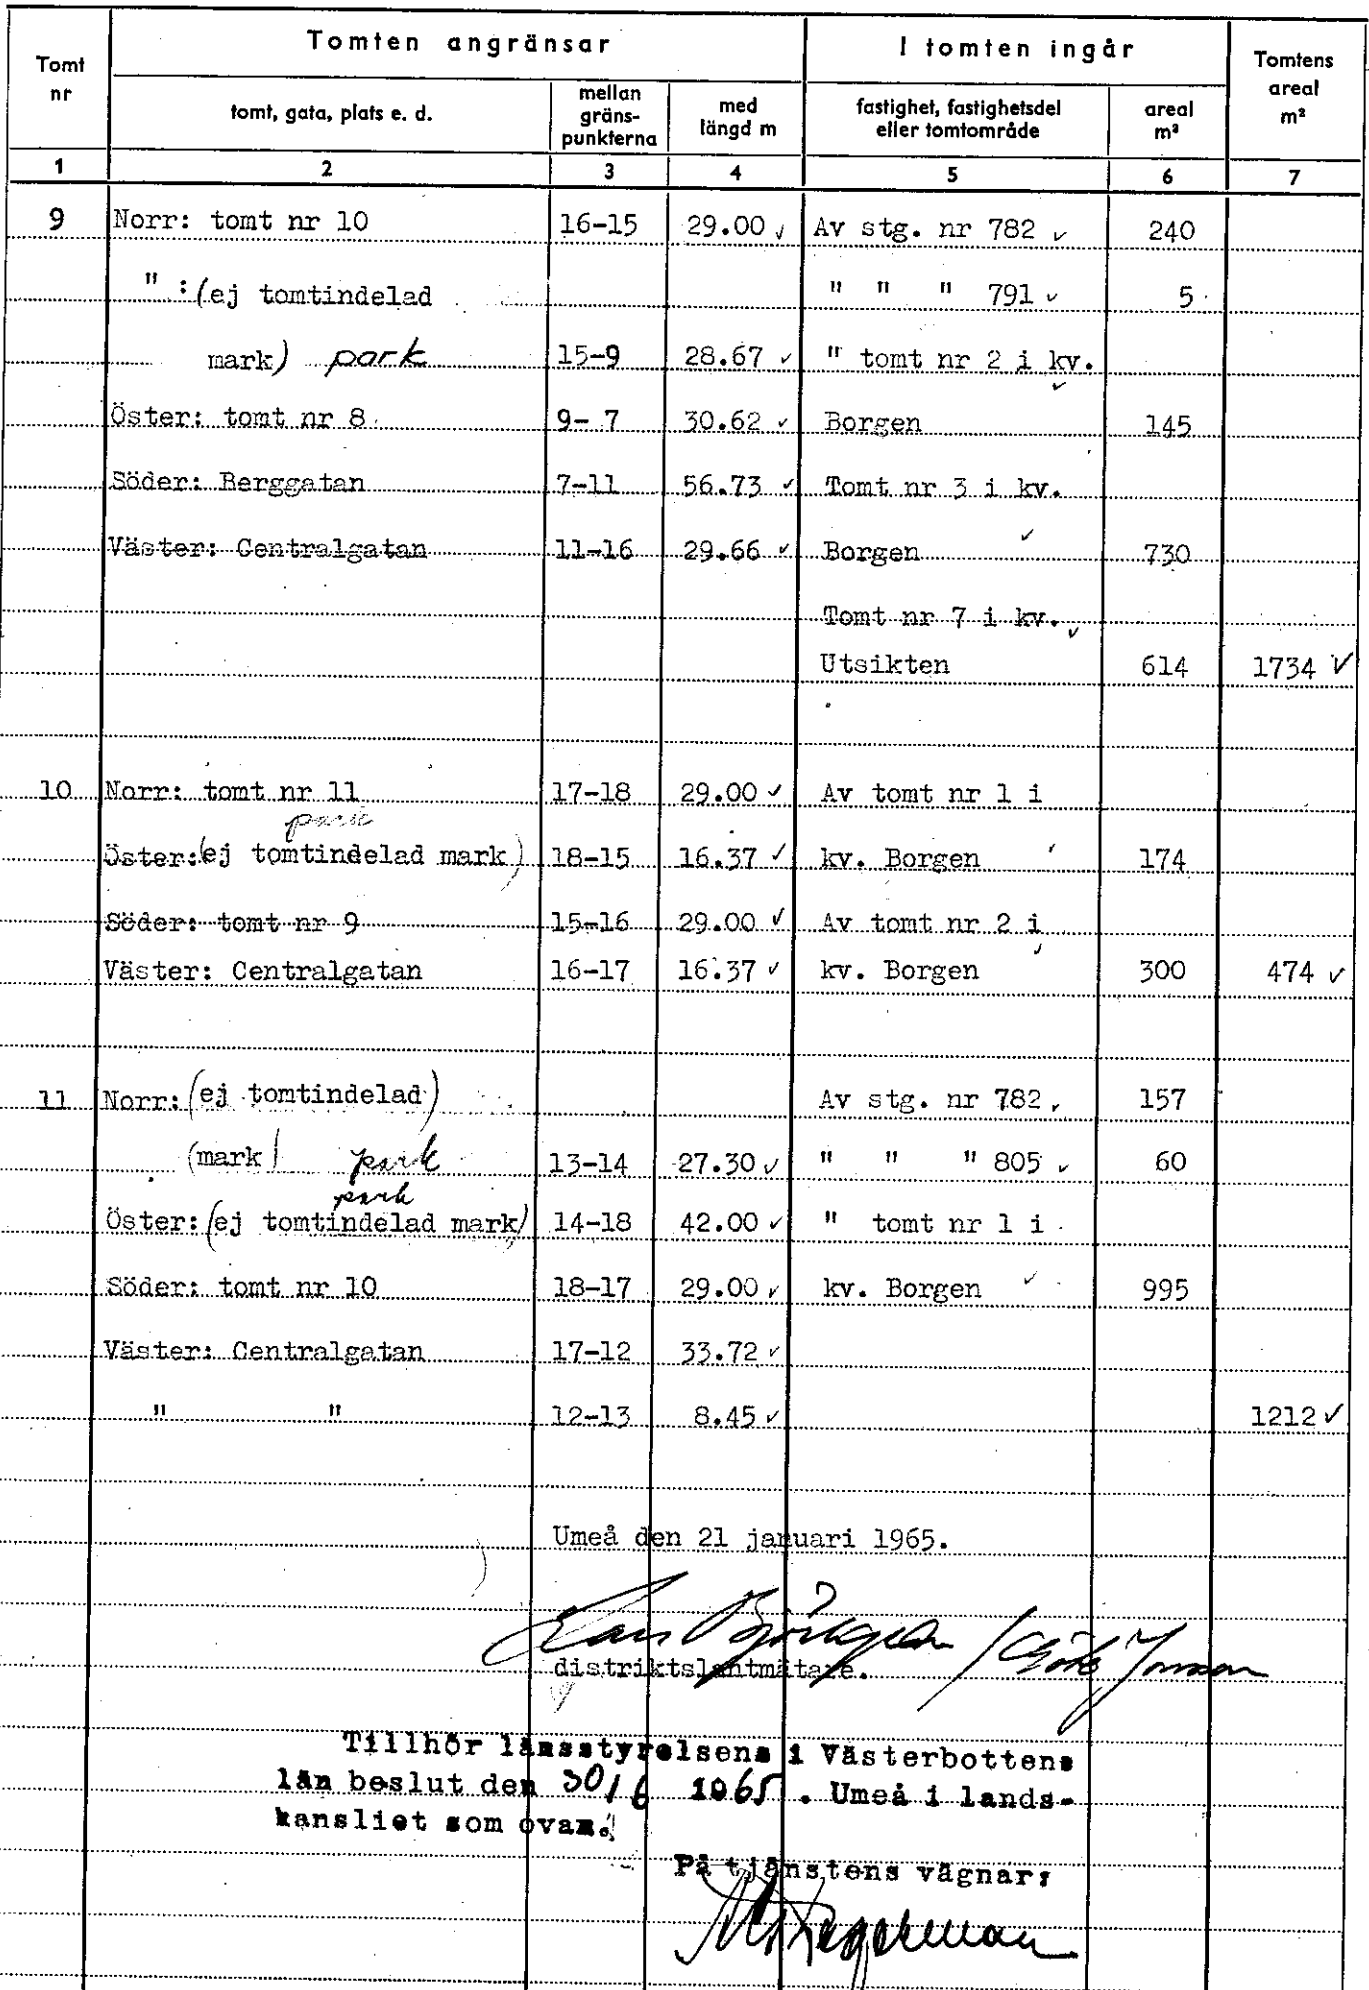 Tomt nr | Tomten angränsar | I tomten ingår | Tomtens areal m²
tomt, gata, plats e. d. | mellan gräns-punkterna | med längd m | fastighet, fastighetsdel eller tomtområde | areal m²
1 | 2 | 3 | 4 | 5 | 6 | 7
9 | Norr: tomt nr 10 | 16-15 | 29.00 ✓ | Av stg. nr 782 ✓ | 240
" : (ej tomtindelad | " " " 791 ✓ | 5
mark) park | 15-9 | 28.67 ✓ | " tomt nr 2 i kv. ✓
Öster: tomt nr 8 | 9- 7 | 30.62 ✓ | Borgen | 145
Söder: Berggatan | 7-11 | 56.73 ✓ | Tomt nr 3 i kv.
Väster: Centralgatan | 11-16 | 29.66 ✓ | Borgen ✓ | 730
Tomt nr 7 i kv. ✓
Utsikten | 614 | 1734 ✓
10 | Norr: tomt nr 11 | 17-18 | 29.00 ✓ | Av tomt nr 1 i
park
Öster: (ej tomtindelad mark) | 18-15 | 16.37 ✓ | kv. Borgen ✓ | 174
Söder: tomt nr 9 | 15-16 | 29.00 ✓ | Av tomt nr 2 i
Väster: Centralgatan | 16-17 | 16.37 ✓ | kv. Borgen ✓ | 300 | 474 ✓
11 | Norr: (ej tomtindelad) | Av stg. nr 782 ✓ | 157
(mark) park | 13-14 | 27.30 ✓ | " " " 805 ✓ | 60
park
Öster: (ej tomtindelad mark) | 14-18 | 42.00 ✓ | " tomt nr 1 i
Söder: tomt nr 10 | 18-17 | 29.00 ✓ | kv. Borgen ✓ | 995
Väster: Centralgatan | 17-12 | 33.72 ✓
" " | 12-13 | 8.45 ✓ | 1212 ✓
Umeå den 21 januari 1965.
distriktslantmätare.
Tillhör länsstyrelsens i Västerbottens
län beslut den 30/6 1965. Umeå i lands-
kansliet som ovan.
På tjänstens vägnar: